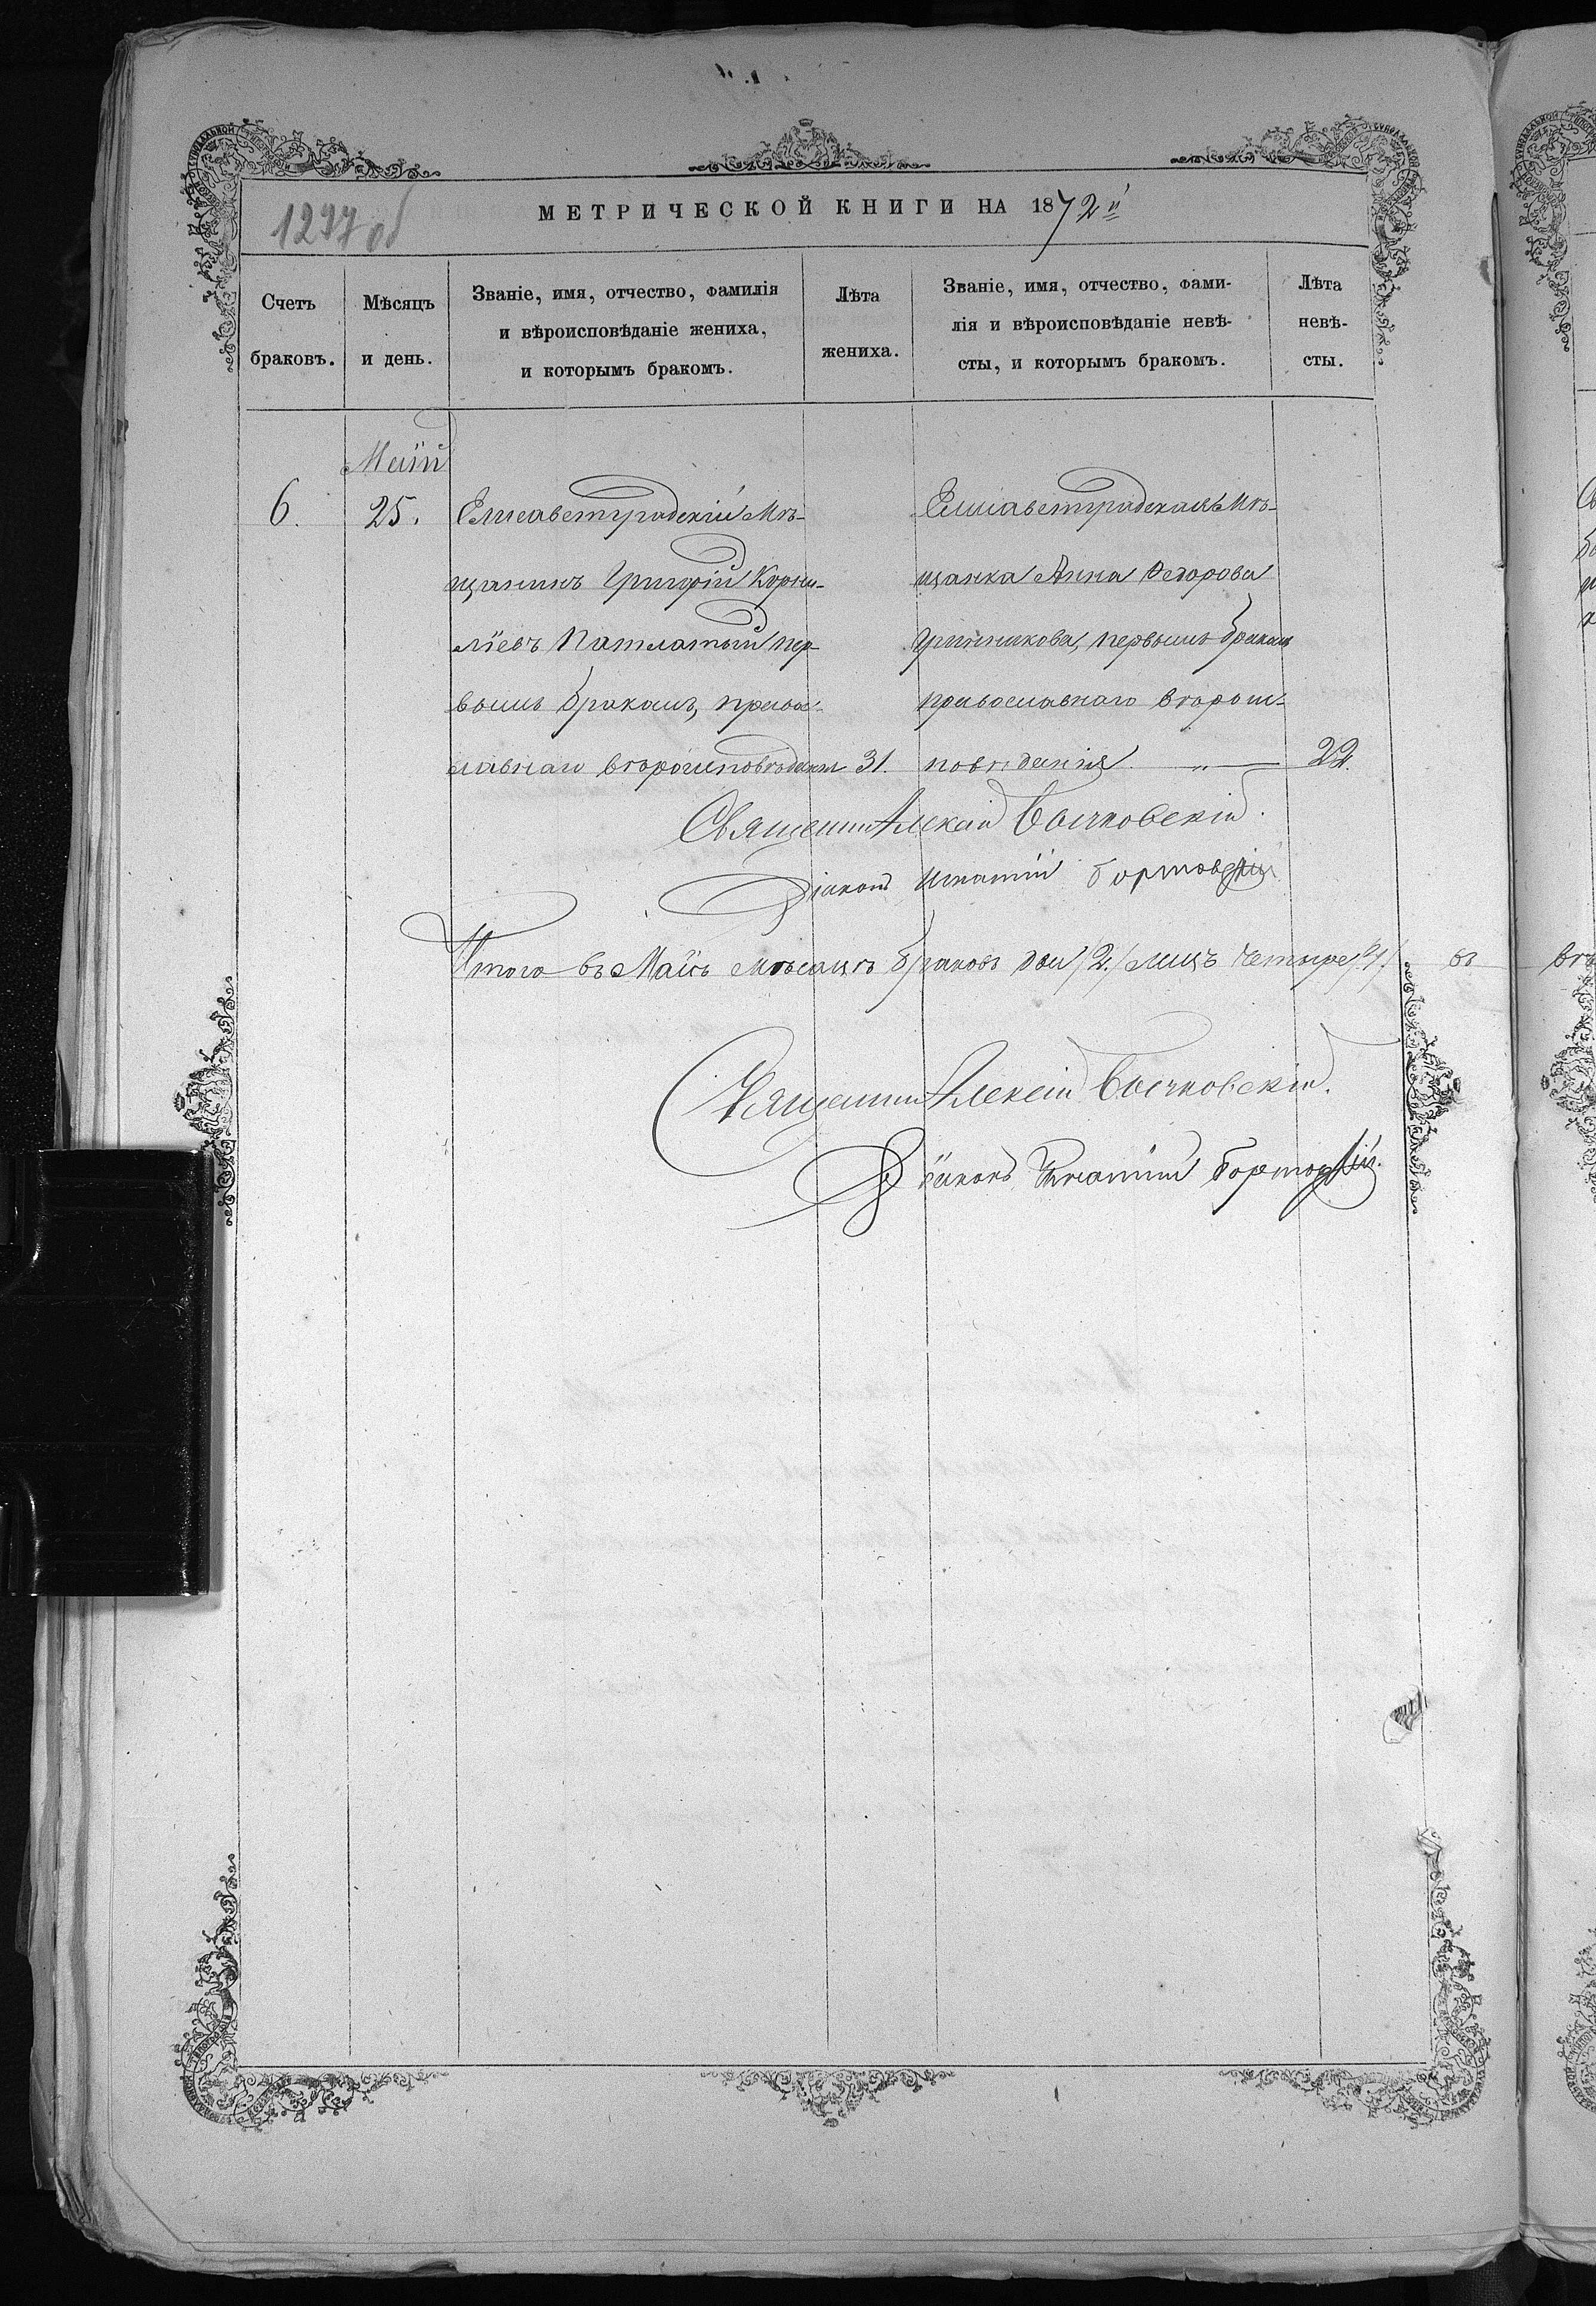 1297 об
МЕТРИЧЕСКОЙ КНИГИ НА 1872й
Счетъ браковъ.
Мѣсяцъ и день.
Званіе, имя, отчество, фамилія
и вѣроисповѣданіе жениха,
и которымъ бракомъ.
Лѣта жениха.
Званіе, имя, отчество, фами-
лія и вѣроисповѣданіе невѣ-
сты, и которымъ бракомъ.
Лѣта невѣ-
сты.
Маій
6.
25.
Елисаветградскій Мѣ-
щанинъ Григорій Корни-
ліевъ Патлатый пер-
вымъ бракомъ, право-
славнаго вѣроисповѣданія
31.
Елисаветградская Мѣ-
щанка Анна Ѳедорова
первымъ бракомъ
православнаго вѣроис-
повѣданія
22.
Священник Алексій Бычковскій.
Діаконъ Игнатій
Итого въ Маіѣ мѣсяцѣ браковъ два /2./ лицъ четыре /4./
Священник Алексій Бычковскій.
Діаконъ Игнатій